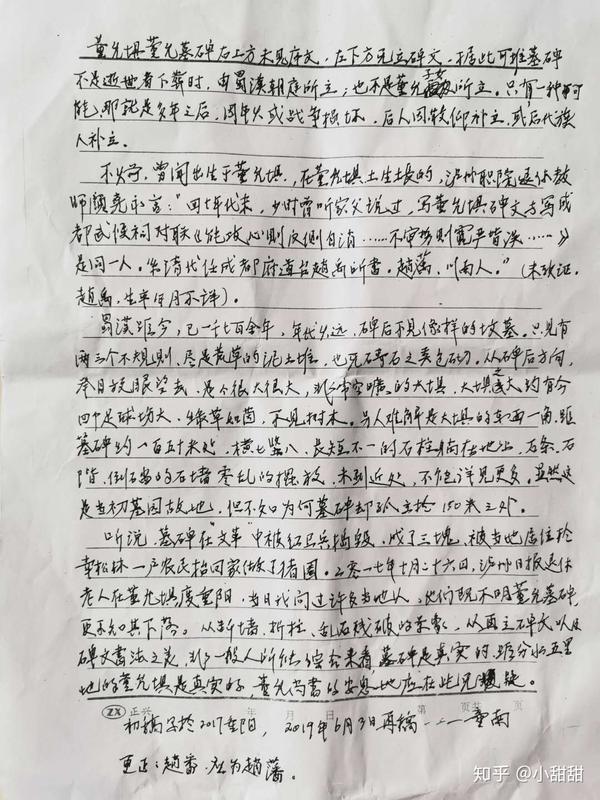 董允坝董允墓碑右上方未见序文，左下方无立碑文，据此可推墓碑
不是逝世者下葬时，由蜀汉朝庭所立；也不是董允子女所立。只有一种可
能，那就是多年之后，因年久或战争损坏，后人因敬仰补立，或后代族
人补立。
不久前，曾闻出生于董允坝，在董允坝土生土长的，泸州职院退休教
师颜亮永言："四十年代末，少时曾听家父说过，写董允坝碑文与写成
都武侯祠对联《能攻心则反侧自消……不审势则宽严皆误……》
是同一人。为清代任成都府道台赵  所书。赵  ，川南人。"（未攷证，
赵  ，生卒年月不详）。
蜀汉距今，已一千七百余年，年代久远，碑后不见像样的坟墓。只见有
两三个不规则、尽是荒草的泥土堆，也无石  石之类包砌。从碑后方向，
举目放眼望去，是个很大很大，非常空旷的大坝，大坝之大约有今
四个足球场大，绿草如茵，不见树木。与人难解是大坝的东西一角，距
墓碑约一百五十米处，横七竖八、长短不一的石柱躺在地上，石条、石
阶、倒石  的石堵零乱的摆放，未到近处，不能详见更多。虽然这
是当初墓园故地，但不知为何墓碑却孤立于150米之外。
听说，墓碑在"文革"中被红卫兵搞毁，成了三块，被当地居住于
幸松林一户农民抬回家做了猪圈。二零一七年十月二十六日，泸州日报退休
老人在董允坝度重阳，当日我问过许多当地人，他们既不明董允墓碑，
更不知其下落。从断墙、折柱、乱石残破的景象，从再立碑长以及
碑文书法之美，非一般人所能  综合来看墓碑是真实的，距分水五里
地的董允坝是真实的，董允尚书的安息地应在此无疑。
ZX 正兴 年 月 日 第 页 共 页
初稿写于2017重阳，2019年6月3日再稿 一一一 重南
更正：赵番，应为赵藩。
知乎 @小甜甜